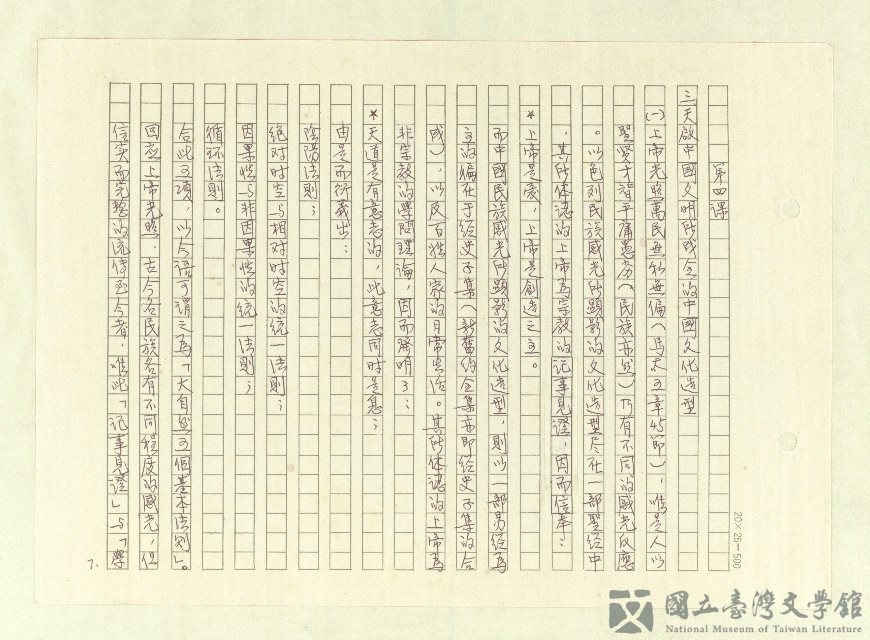 第四課
三天啟中國文明所成全的中國文化造型
(一)上帝光照萬民無私無偏(馬太五章45節),唯是人以
聖賢才智平庸愚劣(民族亦然)乃有不同的感光反應
。以色列民族感光所顯影的文化造型尽在一部聖經中
,其所体認的上帝為宗教的記事見證,因而信奉:
*上帝是爱,上帝是創造之主。
而中國民族感光所顯影的文化造型,則以一部易經為
主的徧在于经史子集(新舊约全集亦即经史子集的合
成),以及百姓人家的日常生活。其所体認的上帝為
非宗教的學問理論,因而發明了:
*天道是有意志的,此意志同時是息;
由是而衍義出:
陰陽法則;
绝对时空与相对时空的统一法則;
因果性与非因果性的统一法則;
循环法則。
合此五項,以今語可謂之為「大自然五個基本法則」。
回应上帝光照,古今各民族各有不同程度的感光,但
信实而完整的流传至今者,唯此「記事見證」与「學
7.
20×25=500
國立臺灣文學館
National Museum of Taiwan Literature